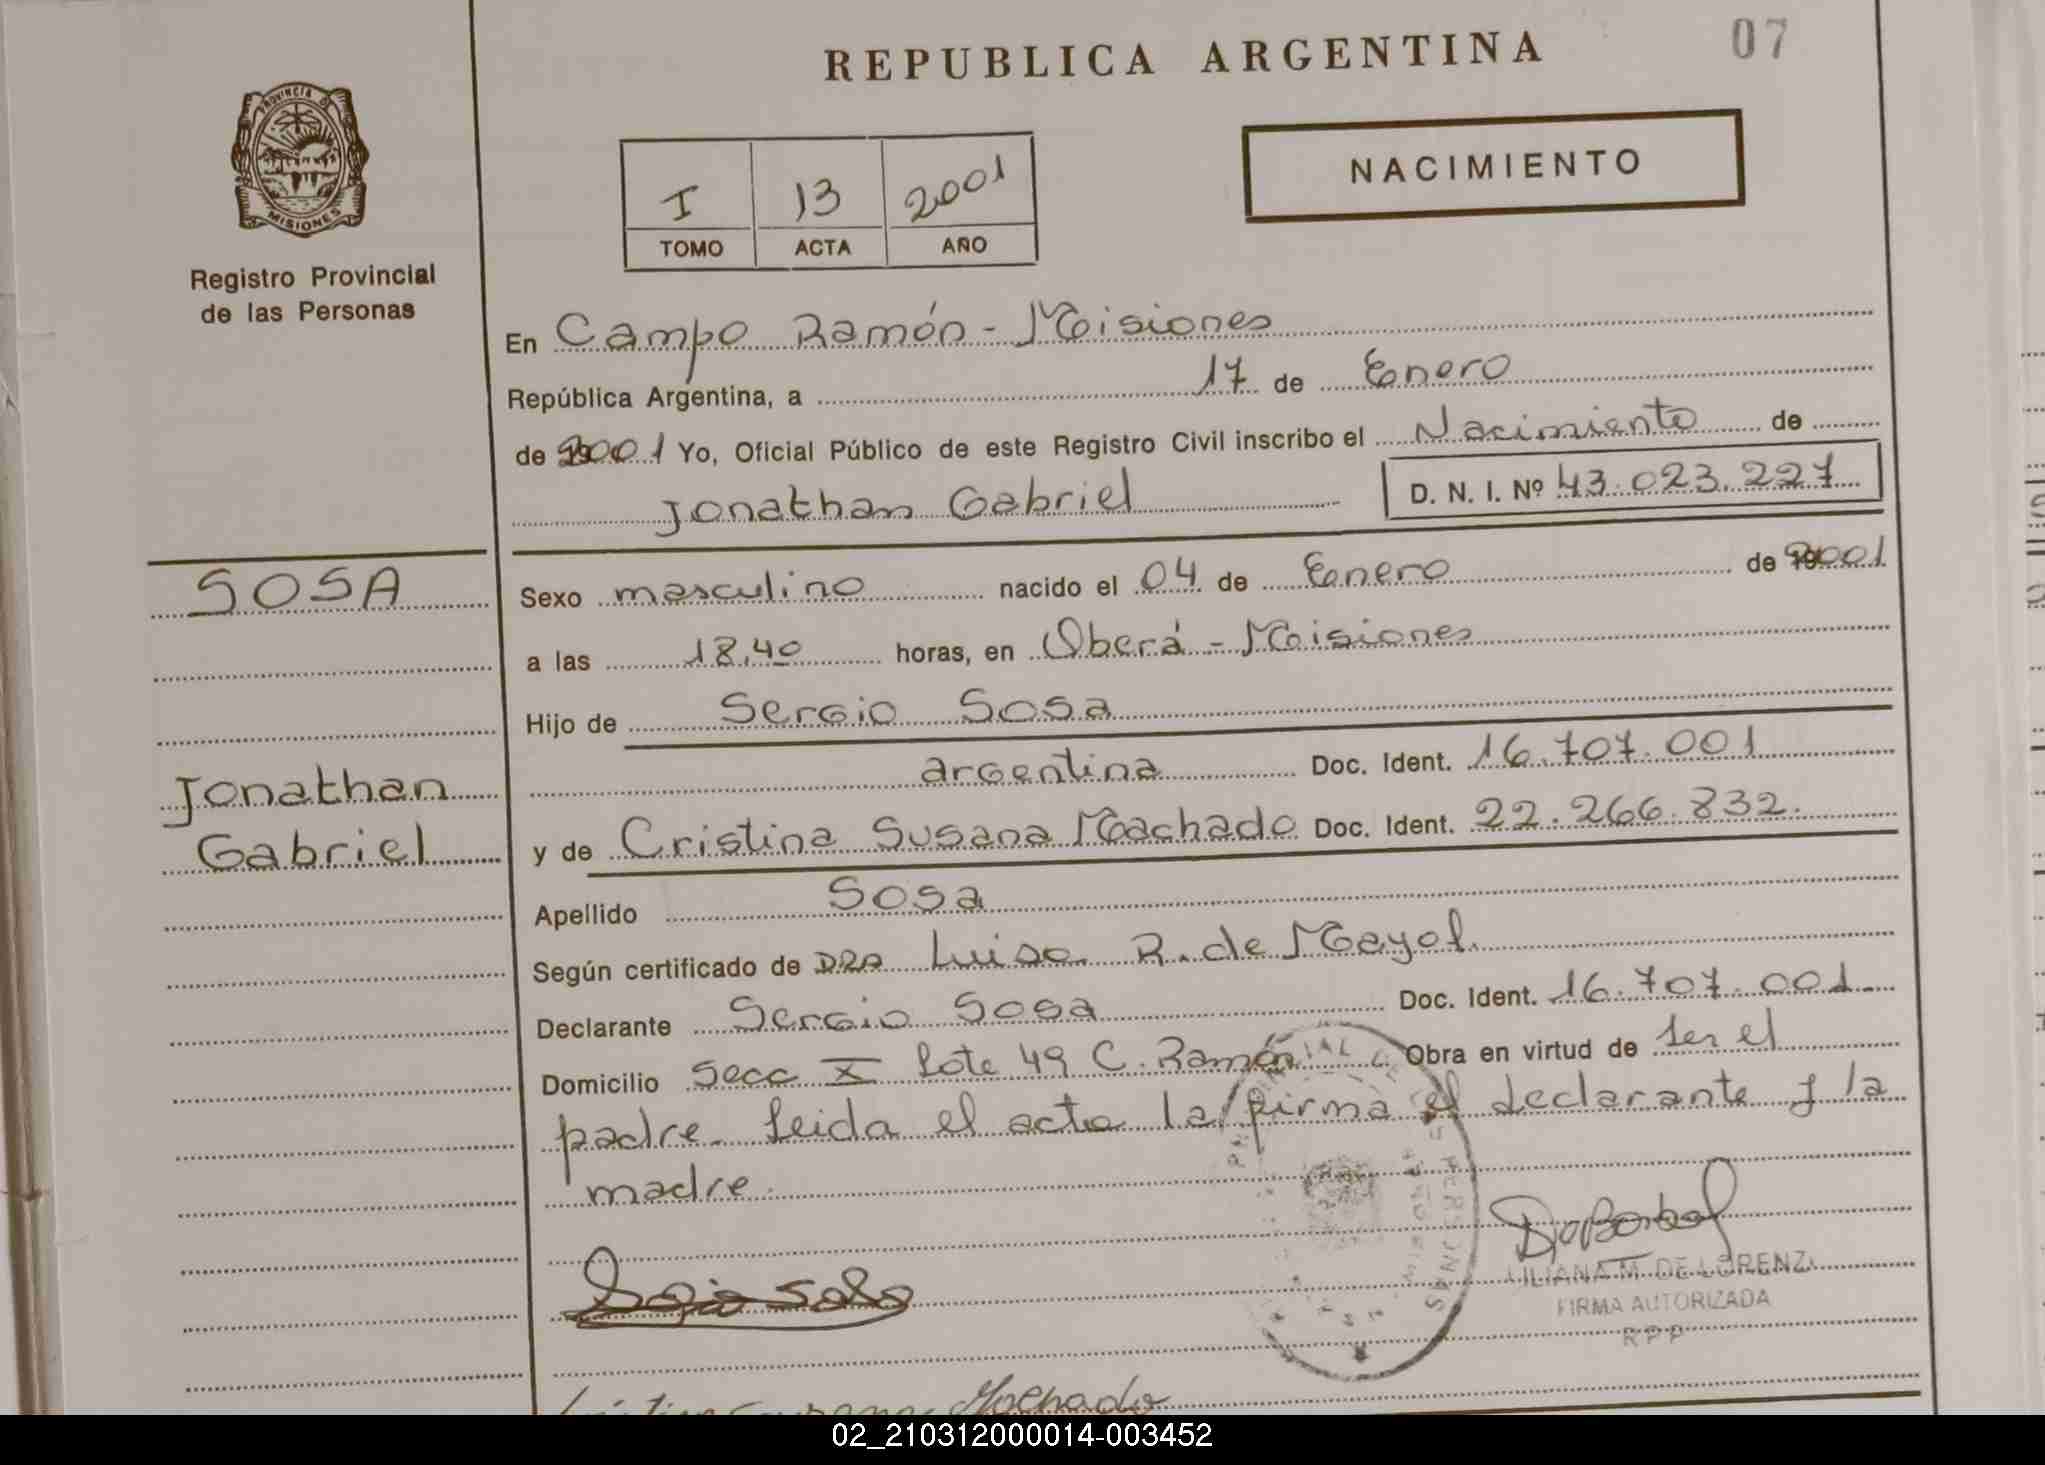 REPUBLICA ARGENTINA
07
PROVINCIA DE
MISIONES
Registro Provincial
de las Personas
I 13 2001
TOMO ACTA AÑO
NACIMIENTO
En Campo Ramón - Misiones
República Argentina, a 17 de Enero
de 2001 Yo, Oficial Público de este Registro Civil inscribo el Nacimiento de
Jonathan Gabriel D. N. I. Nº 43.023.227
SOSA
Jonathan
Gabriel
Sexo masculino nacido el 04 de Enero de 2001
a las 18,40 horas, en Oberá - Misiones
Hijo de Sergio Sosa
argentina Doc. Ident. 16.707.001
y de Cristina Susana Machado Doc. Ident. 22.266.832.
Apellido Sosa
Según certificado de DRA Luisa R. de Mayol
Declarante Sergio Sosa Doc. Ident. 16.707.001
Domicilio Secc X Lote 49 C. Ramón Obra en virtud de ser el
padre. Leida el acta la firma el declarante y la
madre.
Sergio Sosa
LILIANA M. DE LORENZI
FIRMA AUTORIZADA
R P P
Cristina Susana Machado
02_210312000014-003452